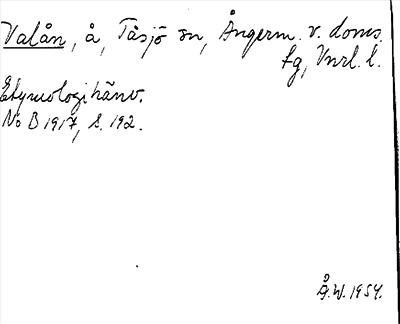 Valån, å, Tåsjö sn, Ångerm. v. doms.
tg, Vnrl. l.
Etymologihänv.
No B 1917, s. 192.
Å.W. 1954.